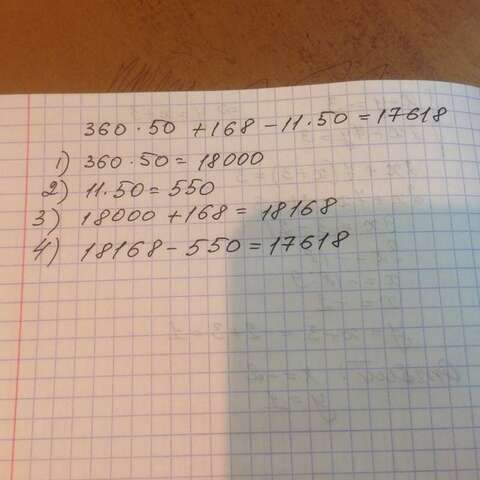 360 · 50 + 168 - 11 · 50 = 17618
1) 360 · 50 = 18000
2) 11 · 50 = 550
3) 18000 + 168 = 18168
4) 18168 - 550 = 17618